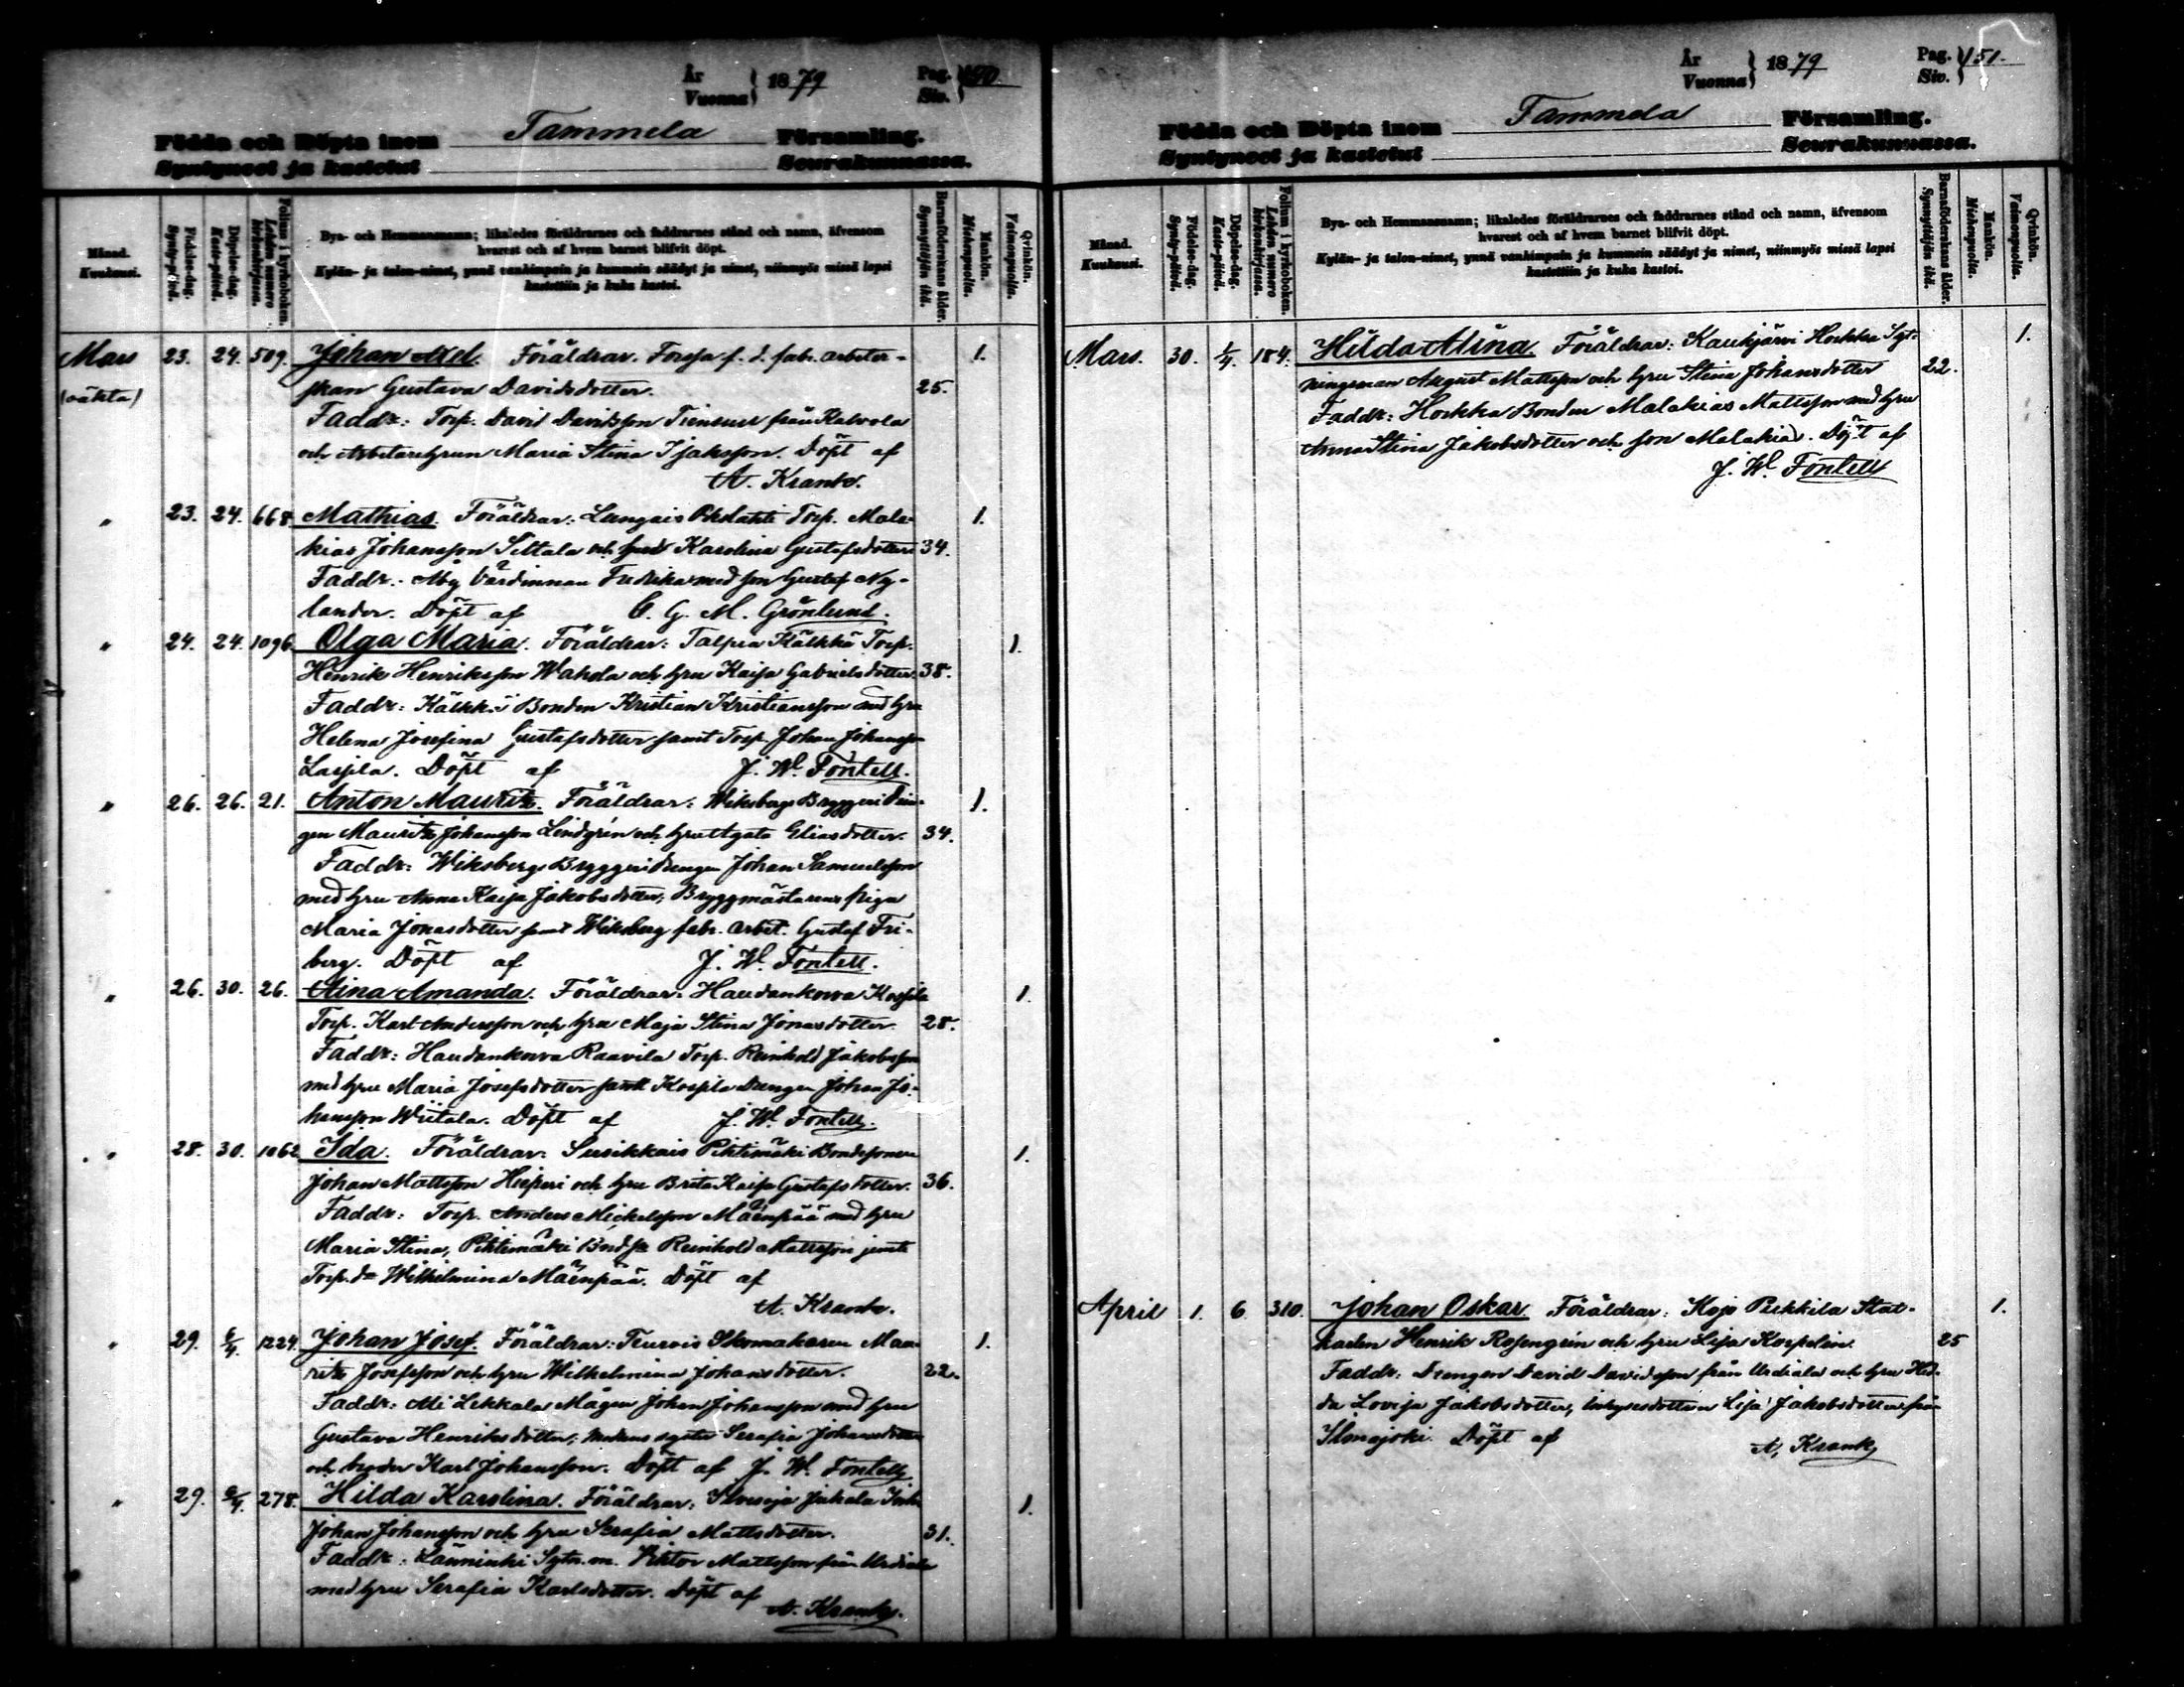 År
Vuonna } 1879
Pag.
Siv. } 150.
Födda och Döpta inom Tammela Församling.
Syntyneet ja kastetut Seurakunnassa.
Månad.
Kuukausi.
Födelse-dag.
Synty-päivä.
Döpelse-dag.
Kaste-päivä.
Folium i kyrkoboken.
Lehden numero kirkonkirjassa.
Bya- och Hemmansnamn; likaledes föräldrarnes och faddrarnes stånd och namn, äfvensom
hvarest och af hvem barnet blifvit döpt.
Kylän- ja talon-nimet, ynnä vanhimpain ja kummein säädyt ja nimet, niinmyös missä lapsi
kastettiin ja kuka kastoi.
Barnaföderskans ålder.
Synnyttäjän ikä.
Mankön.
Miehenpuolia.
Qvinkön.
Vaimonpuolia.
Mars 23. 24. 509. Johan Axel. Föräldrar. Forssa f. d. fabr. arbeter- 1.
(oäkta) skan Gustava Davidsdotter. 25.
Faddr: Torp. David Davidsson from Kalvola
och Arbetarehrun Maria Stina Isaksson. Döpt af
A. Krank.
" 23. 24. 668 Mathias. Föräldrar: Torp. Mala- 1.
kias Johansson och Karolina Gustafsdotter 34.
Faddr: Åby Värdinnan Fredrika med son Gustaf Ny-
lander. Döpt af C. G. M. Grönlund.
" 24. 24. 1096. Olga Maria. Föräldrar: Talpia Kälkkä Torp. 1.
Henrik Henriksson Wahola och hru Kaisa Gabrielsdotter. 38.
Faddr: Kälkkä Bonden Kristian Kristiansson med hru
Helena Josefina Gustafsdotter samt Torp. Johan Johansson
Laspila. Döpt af J. W. Fontell.
" 26. 26. 21. Anton Mauritz. Föräldrar: Wiksbergs Bryggeri Drän- 1.
gen Mauritz Johansson Lindgrén och hru Agata Eliasdotter. 34.
Faddr: Wiksbergs Bryggeri Drengen Johan Samuelsson
med hru Anna Kaisa Jakobsdotter, Bryggmästarens piga
Maria Jonasdotter samt Wiksberg fabr. arbet. Gustaf Fri-
berg. Döpt af J. W. Fontell.
" 26. 30. 26. Aina Amanda. Föräldrar: Haudankorva Kospila 1.
Torp. Karl Andersson och hru Maja Stina Jonasdotter. 28.
Faddr: Haudankorva Raavila Torp. Reinhold Jakobsson
med hru Maria Josefsdotter samt Kospila Drengen Johan Jo-
hansson Wiitala. Döpt af J. W. Fontell.
" 28. 30. 1062 Ida. Föräldrar: Susikkais Pihtimäki Bondesonen 1.
Johan Mattsson och hru Brita Kaisa Gustafsdotter. 36.
Faddr: Torp. Anders Mickelsson Mäenpää med hru
Maria Stina, Pihtimäki Bndsn Reinhold Mattsson jemte
Torp. dr Wilhelmina Mäenpää. Döpt af
A. Krank.
" 29. 6/4. 1224. Johan Josef. Föräldrar: Teurois Skomakaren Mau- 1.
ritz Josefsson och hru Wilhelmina Johansdotter. 22.
Faddr: Lekkala Mågen Johan Johansson med hru
Gustava Henriksdotter, syster Serafia Johansdotter
och broder Karl Johansson. Döpt af J. W. Fontell
" 29. 6/4. 278. Hilda Karolina. Föräldrar: Jukala 1.
Johan Johansson och hru Serafia Mattsdotter. 31.
Faddr: Känninki Sytn. m. Viktor Mattsson från Urdiala
med hru Serafia Karlsdotter. Döpt af
A. Krank.
År
Vuonna } 1879
Pag.
Siv. } 151.
Födda och Döpta inom Tammela Församling.
Syntyneet ja kastetut Seurakunnassa.
Månad.
Kuukausi.
Födelse-dag.
Synty-päivä.
Döpelse-dag.
Kaste-päivä.
Folium i kyrkoboken.
Lehden numero kirkonkirjassa.
Bya- och Hemmansnamn; likaledes föräldrarnes och faddrarnes stånd och namn, äfvensom
hvarest och af hvem barnet blifvit döpt.
Kylän- ja talon-nimet, ynnä vanhimpain ja kummein säädyt ja nimet, niinmyös missä lapsi
kastettiin ja kuka kastoi.
Barnaföderskans ålder.
Synnyttäjän ikä.
Mankön.
Miehenpuolia.
Qvinkön.
Vaimonpuolia.
Mars. 30. 1/4. 184. Hilda Alina. Föräldrar: Kaukjärvi Horkka Syt- 1.
ningsman August Mattsson och hru Stina Johansdotter 22.
Faddr: Horkka Bonden Malakias Mattsson med hru
Anna Stina Jakobsdotter och son Malakias. Döpt af
J. W. Fontell
April 1. 6. 310. Johan Oskar. Föräldrar: Kojo Pirkkila Stat- 1.
karlen Henrik Rosengrén och hru Lisa Korpelin. 25
Faddr: Drengen David Davidsson från Urdiala och hru Hed-
da Lovisa Jakobsdotter, Lisa Jakobsdotter från
Ilmajoki. Döpt af A. Krank